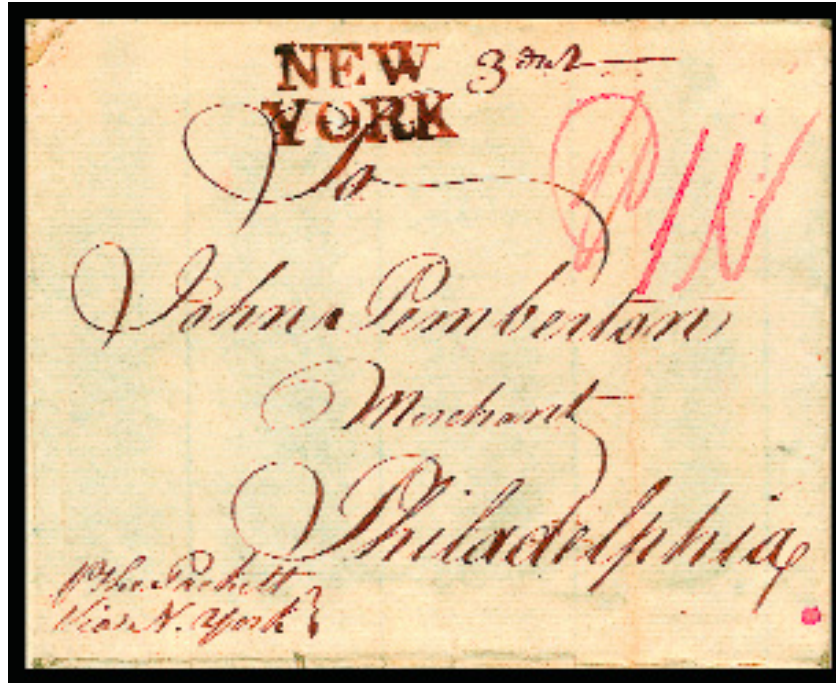 NEW
YORK
To
John Pemberton
Merchant
Philadelphia
Packett
Via N. York